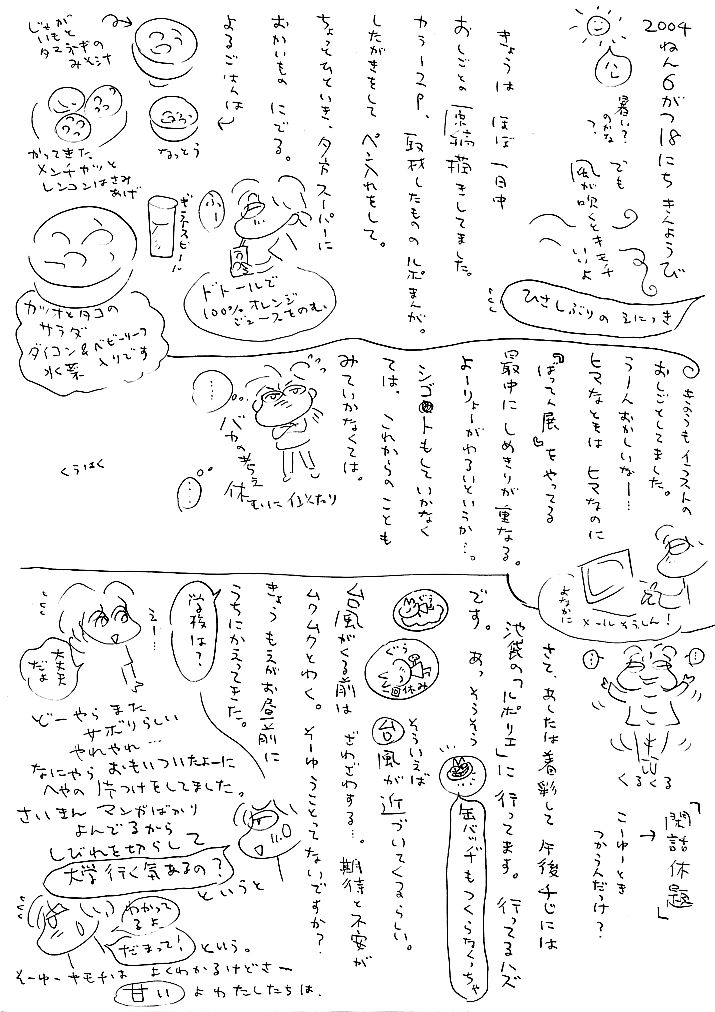 2004
ねん6がつ18にち きんようび
暑い?
のかな
?
でも
風が吹くとキモチ
いいよ
ひさしぶりの えにっき
きょうは ほぼ 一日中
おしごとの 原稿描きしてました。
カラー2P、取材したものの ルポまんが。
したがきをして ペン入れをして。
ちょっとひといき、夕方スーパーに
おかいもの にでる。
よるごはんは
ふー
ドトールで
100%オレンジ
ジュースをのむ。
じゃが
いもと
タマネギの
みそ汁
なっとう
かってきた
メンチカツと
レンコンはさみ
あげ
ギネスビール
カツオとタコの
サラダ
ダイコン&ベビーリーフ
水菜 入りです
きのうもイラストの
おしごとしてました。
うーんおかしいなー…
ヒマなときは ヒマなのに
『ばってん展』をやってる
最中に しめきりが重なる。
よーりょーがわるいというか…。
シゴトもしていかなく
ては。これからのことも
みていかなくては。
よなかに
メールそうしん!
…
バカの考え
休むに似たり
…
くうはく
くるくる
「閑話休題」
→
こーゆーとき
つかうんだっけ?
さて、あしたは着彩して 午後イチには
池袋の「ルポリエ」に 行ってます。行ってるハズ
です。あっ そうそう
缶バッチもつくらなくっちゃ
ぐぅ
一回休み
そういえば
台風が 近づいてくるらしい。
台風がくる前は ざわざわする…。期待と不安が
ムクムクとわく。そーゆうことってないですか?
きょう もえがお昼前に
うちにかえってきた。
学校は?
えー…
大丈夫
だよ
どーやら また
サボりらしい
やれやれ…
なにやら おもいついたよーに
へやの 片づけをしてました。
さいきん マンガばかり
よんでるから
しびれを切らして
大学行く気あるの?
というと
わかって
るよ
だまって!
という。
そーゆーキモチは よくわかるけどさー
甘い よ わたしたちは.